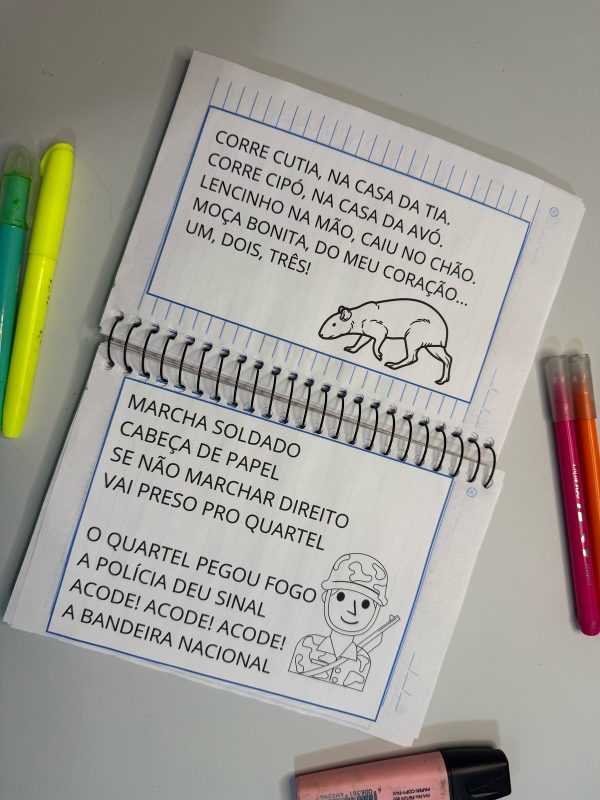 CORRE CUTIA, NA CASA DA TIA.
CORRE CIPÓ, NA CASA DA AVÓ.
LENCINHO NA MÃO, CAIU NO CHÃO.
MOÇA BONITA, DO MEU CORAÇÃO...
UM, DOIS, TRÊS!
MARCHA SOLDADO
CABEÇA DE PAPEL
SE NÃO MARCHAR DIREITO
VAI PRESO PRO QUARTEL
O QUARTEL PEGOU FOGO
A POLÍCIA DEU SINAL
ACODE! ACODE! ACODE!
A BANDEIRA NACIONAL